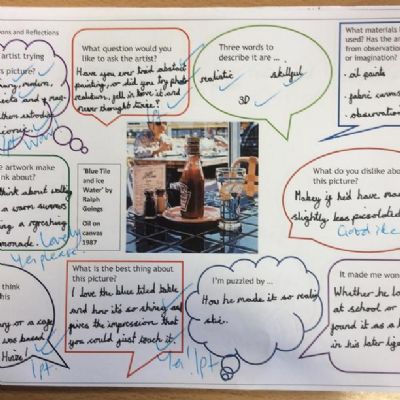 ons and Reflections
artist trying
s picture?
What question would you
like to ask the artist?
Have you ever tried abstract
painting, or did you try photo
realism, fell in love it and
never thought twice?
Three words to
describe it are ...
realistic
skillful
3D
What materials
used? Has the a
from observation
or imagination?
oil paints
fabric canvas
observation
e artwork make
nk about?
think about
a warm summer
a refreshing
lemonade.
Lovely
Yes please!
'Blue Tile
and Ice
Water' by
Ralph
Goings
Oil on
canvas
1987
What do you dislike abo
this picture?
Maybe if he'd have mad
slightly less pixelated
Good idea
think
this
or a cafe
was based
1pt.
What is the best thing about
this picture?
I love the blue tiled table
and how it's so shiny as
gives the impression that
you could just touch it.
Yes! 1pt
I'm puzzled by ...
How he made it so reali
stic.
It made me won
Whether he lo
at school or
found it as a h
in his later life